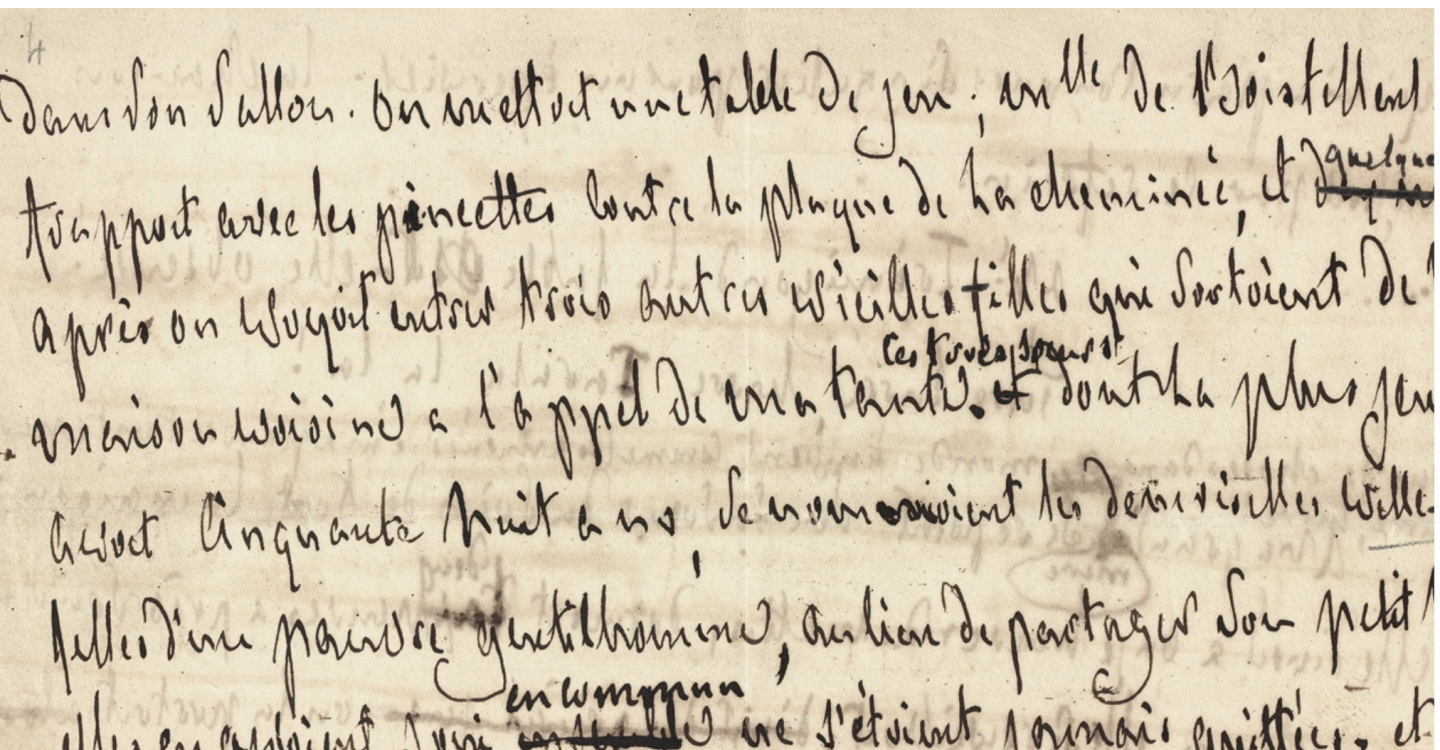 4
dans son sallon. on mettoit une table de jeu; mlle de Boistelleul
frappoit avec les pincettes contre la plaque de la cheminée, et quelque
après on voyoit entrer trois autres vieilles filles qui sortoient de
ces trois sœurs
maison voisine a l'appel de ma tante. et dont la plus jeu
avoit cinquante huit ans, se nommoient les demoiselles ville
filles d'un pauvre gentilhomme, au lieu de partager son petit
en commun
elles en avoient joui ne s'étoient jamais quittées. et